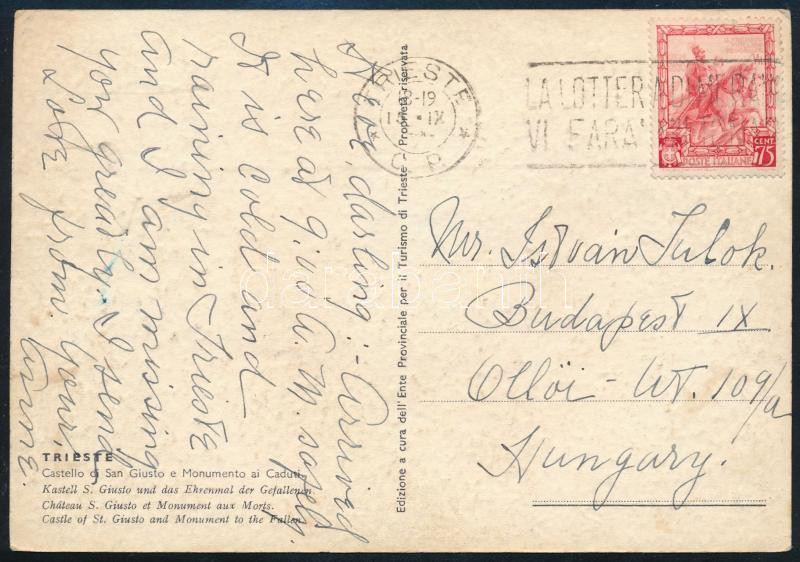 Here, darling: - Arrived
here at 9.40 A.M. safely.
It is cold and
raining in Trieste
and I am missing
you greatly. I send
Love from Your,
Anne.
TRIESTE
Castello di San Giusto e Monumento ai Caduti
Kastell S. Giusto und das Ehrenmal der Gefallenen
Château S. Giusto et Monument aux Morts.
Castle of St. Giusto and Monument to the Fallen
Edizione a cura dell'Ente Provinciale per il Turismo di Trieste - Proprietà riservata
TRIESTE
-19
IX
C.P.
LA LOTTERIA DI MERANO
VI FARA'
CENT.
75
POSTE ITALIANE
Mr. István Tulok.
Budapest IX
Ollői-út. 109/a
Hungary.
darabanth